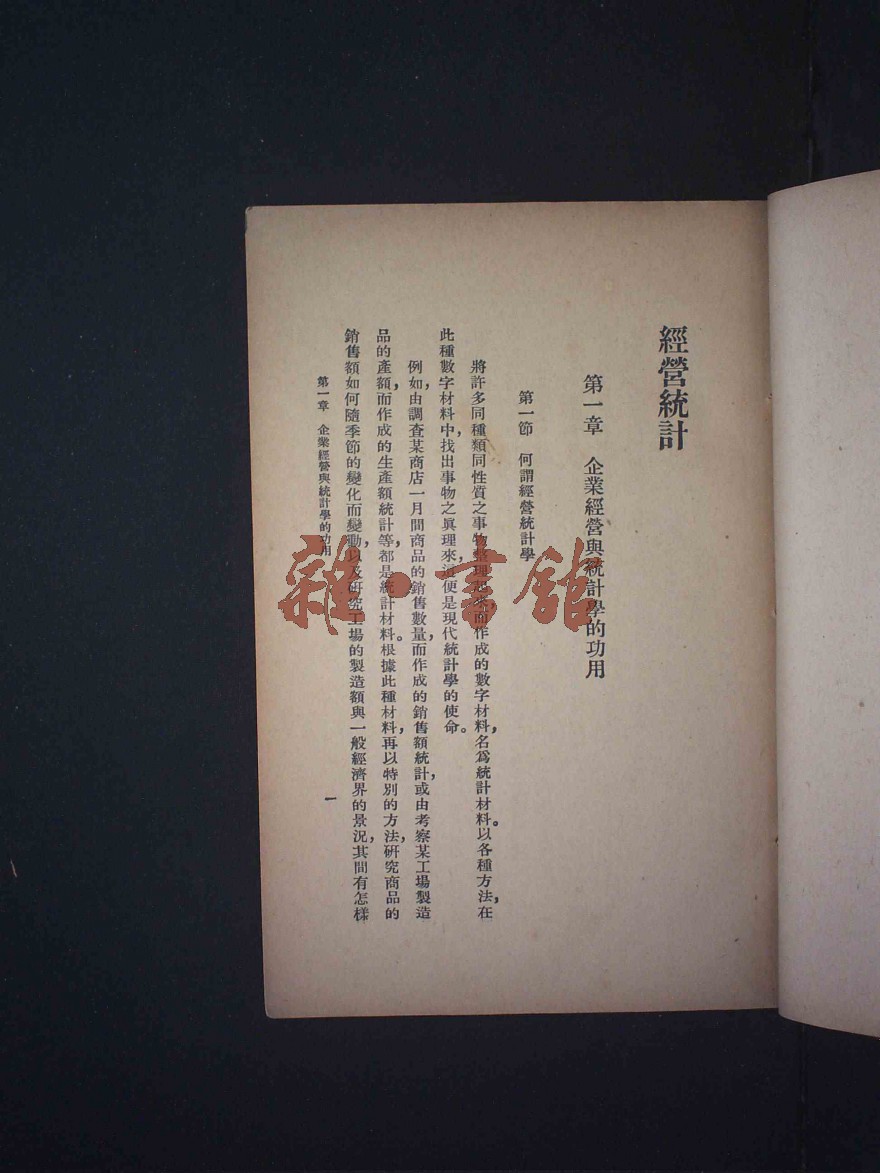 經營統計
第一章　企業經營與統計學的功用
第一節　何謂經營統計學
將許多同種類同性質之事物整理起來,而作成的數字材料,名爲統計材料。以各種方法,在
此種數字材料中,找出事物之眞理來,這便是現代統計學的使命。
例如,由調查某商店一月間商品的銷售數量,而作成的銷售額統計,或由考察某工場製造
品的產額,而作成的生產額統計等,都是統計材料。根據此種材料,再以特別的方法,研究商品的
銷售額如何隨季節的變化而變動,以及研究工場的製造額與一般經濟界的景況,其間有怎樣
第一章　企業經營與統計學的功用
一
雜·書館